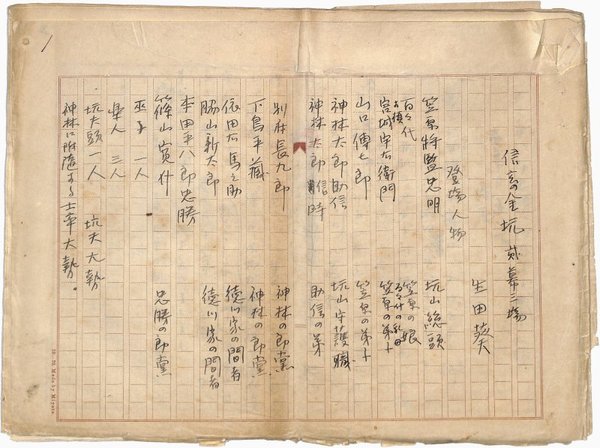 1
信玄の金坑 貳幕三場
生田葵
登場人物
笠原将監忠明 坑山総頭
百々代 笠原の娘
宮城宇右衛門 笠原の弟子
山口傳七郎 笠原の弟子
神林太郎助信 坑山守護職
神林次郎信時 助信の弟
別府長九郎 神林の郎党
下鳥平藏 神林の郎党
依田右馬之助 徳川家の間者
脇山新太郎 徳川家の間者
本田平八郎忠勝
篠山寛什 忠勝の郎党
巫子 一人
星人 三人
坑夫頭一人 坑夫大勢
神林に附随する士卒大勢。